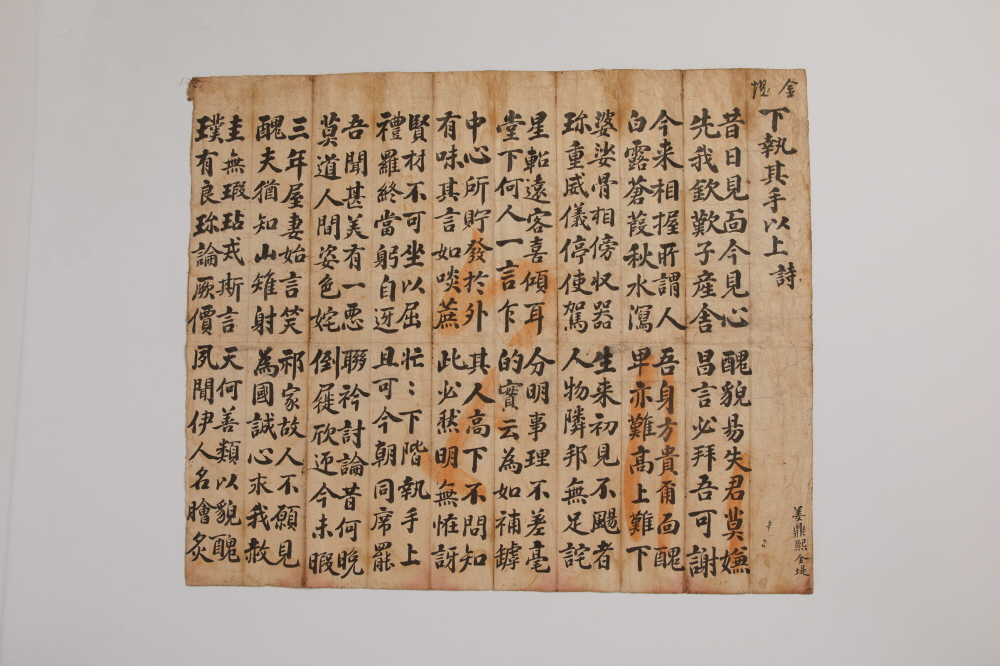 下執其手以上詩
昔日見面今見心 醜貌易失君莫嫌
先我欽歎子産舍 昌言必拜吾可謝
今来相握所謂人 吾身方貴爾面醜
白露蒼葭秋水瀉 卑亦難高上難下
婆娑骨相傍収器 生来初見不颺者
珎重威儀停使駕 人物隣邦無足詫
星軺遠客喜傾耳 分明事理不差毫
堂下何人一言乍 的實云為如補罅
中心所貯發於外 其人高下不問知
有味其言如啖蔗 此必然明無恠訝
賢材不可坐以屈 忙〻下階執手上
禮羅終當躬自迓 且可今朝同席罷
吾聞甚美有一悪 聯衿討論昔何晚
莫道人間姿色姹 倒屣欣迎今未暇
三年屋妻始言笑 祁家故人不願見
醜夫猶知山雉射 為國誠心求我赦
圭無瑕玷戎斯言 天何善類以貌醜
璞有良珎論厥價 夙聞伊人名膾炙
金
姜鼎熙 金堤